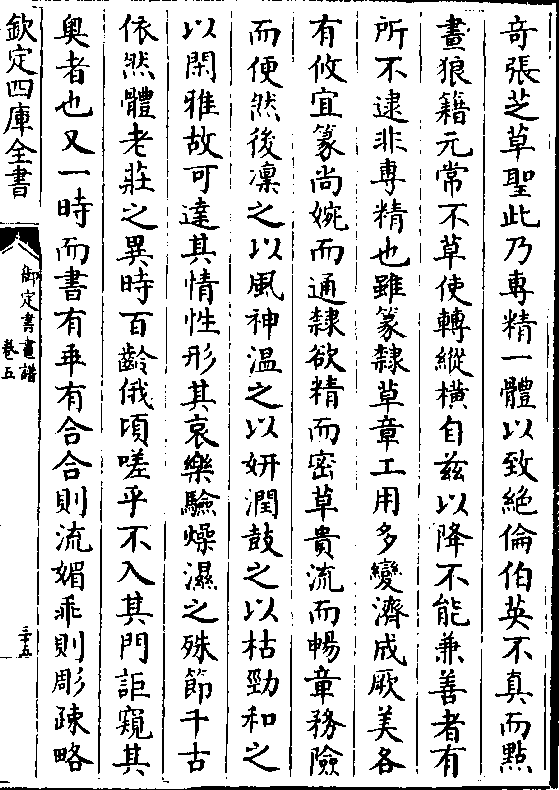 奇張芝草聖此乃専精一體以致絶倫伯英不真而㸃
畫狼籍元常不草使轉縱横自兹以降不能兼善者有
所不逮非専精也雖篆隸草章工用多變濟成厥美各
有攸宜篆尚婉而通隸欲精而密草貴流而暢章務險
而便然後凛之以風神温之以妍潤鼓之以枯勁和之
以閑雅故可達其情性形其哀樂驗燥濕之殊節千古
依然體老莊之異時百齡俄頃嗟乎不入其門詎窺其
奥者也又一時而書有乖有合合則流媚乖則彫疎略
欽定四庫全書
御定書畫譜
卷五